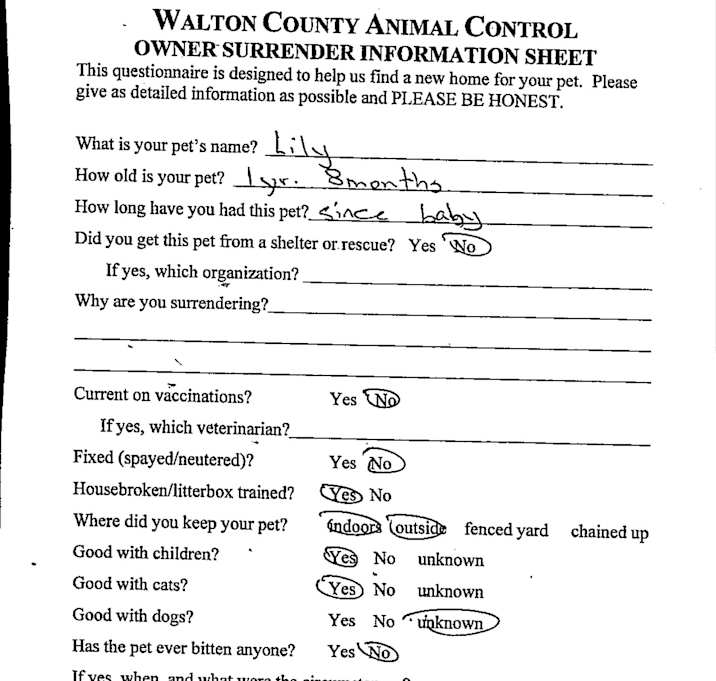 WALTON COUNTY ANIMAL CONTROL
OWNER SURRENDER INFORMATION SHEET
This questionnaire is designed to help us find a new home for your pet. Please
give as detailed information as possible and PLEASE BE HONEST.
What is your pet's name? Lily
How old is your pet? 1 yr. 8 months
How long have you had this pet? since baby
Did you get this pet from a shelter or rescue? Yes No
If yes, which organization?
Why are you surrendering?
Current on vaccinations? Yes No
If yes, which veterinarian?
Fixed (spayed/neutered)? Yes No
Housebroken/litterbox trained? Yes No
Where did you keep your pet? indoors outside fenced yard chained up
Good with children? Yes No unknown
Good with cats? Yes No unknown
Good with dogs? Yes No unknown
Has the pet ever bitten anyone? Yes No
If yes, when, and what were the